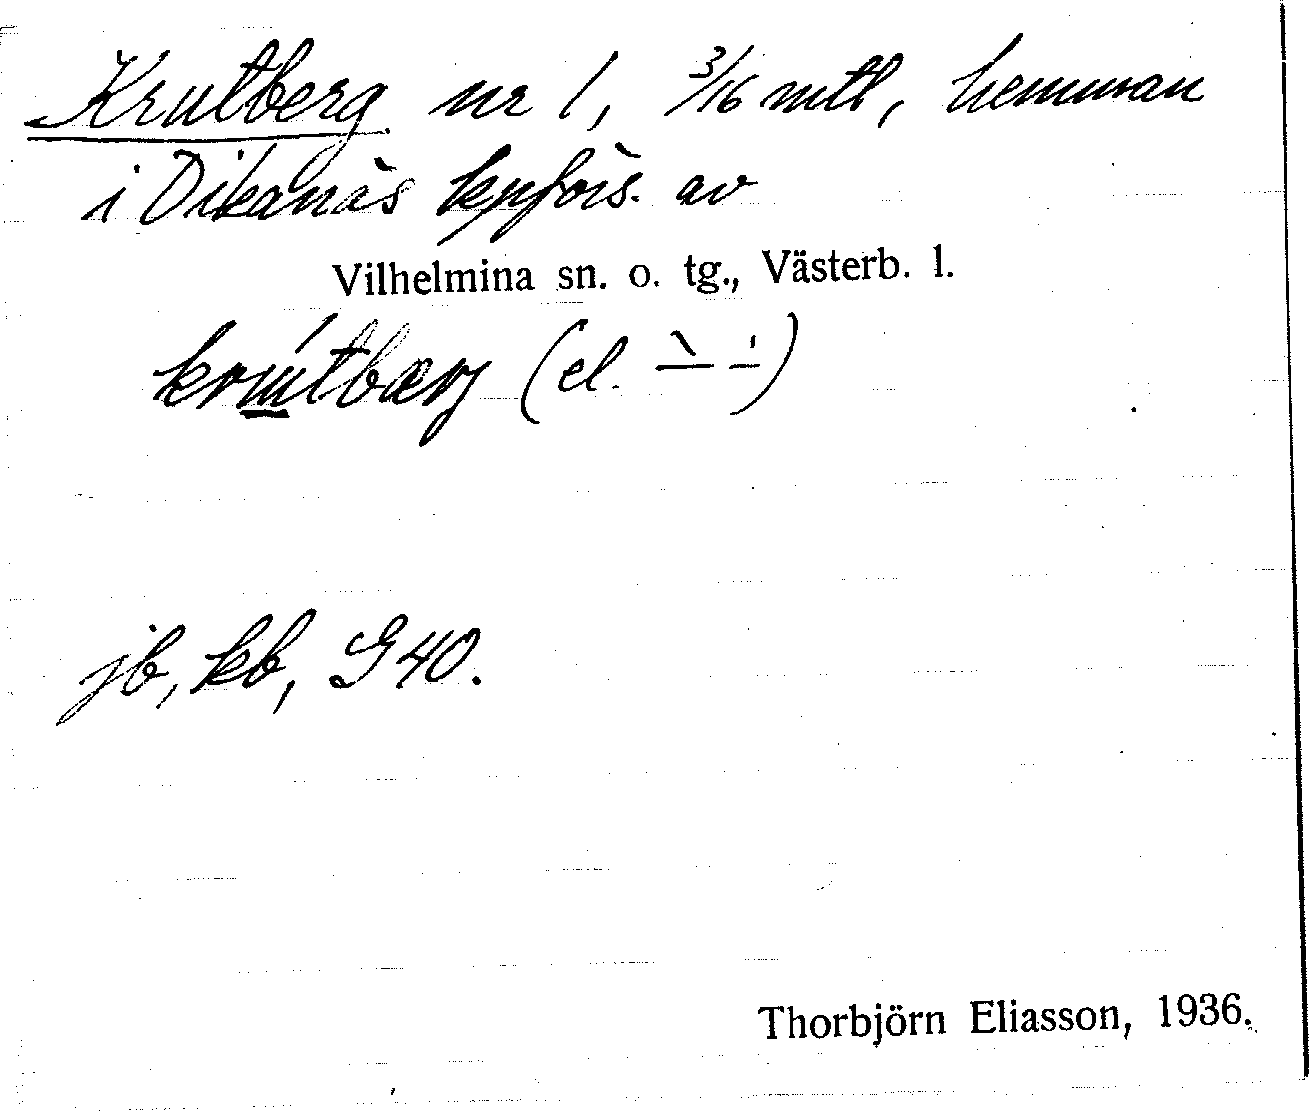 Krutberg nr 1, 3/16 mtl, hemman
i Dikanäs kpförs. av
Vilhelmina sn. o. tg., Västerb. l.
(el.
jb, kb, G40.
Thorbjörn Eliasson, 1936.